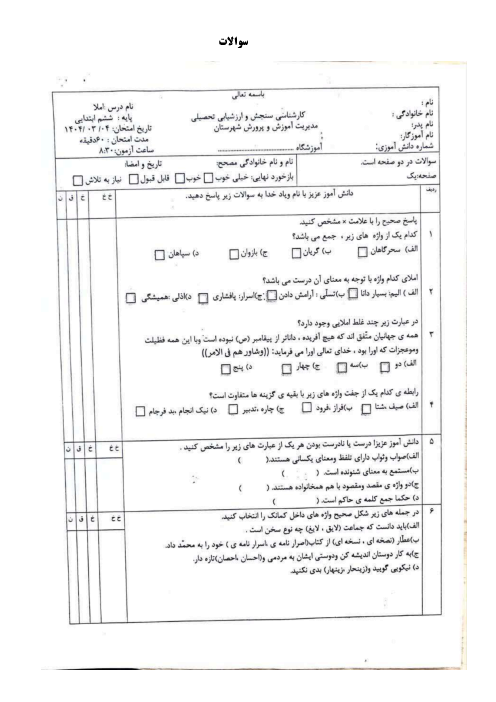 سوالات
باسمه تعالی
نام :
نام خانوادگی :
نام پدر:
نام آموزگار:
شماره دانش آموزی:
کارشناسی سنجش و ارزشیابی تحصیلی
مدیریت آموزش و پرورش شهرستان
آموزشگاه
نام درس: املا
پایه : ششم ابتدایی
تاریخ امتحان: ۰۴/ ۰۳/ ۱۴۰۴
مدت امتحان : ۶۰دقیقه
ساعت آزمون: ۸:۳۰
سوالات در دو صفحه است.
صفحه:یک
نام و نام خانوادگی مصحح:
تاریخ و امضا:
بازخورد نهایی: خیلی خوب خوب قابل قبول نیاز به تلاش
ردیف
دانش آموز عزیز با نام ویاد خدا به سوالات زیر پاسخ دهید.
خ خ خ ق ن
پاسخ صحیح را با علامت × مشخص کنید.
۱ کدام یک از واژه های زیر ، جمع می باشد؟
الف) سحرگاهان ب) گریان ج) بازوان د) سپاهان
املای کدام واژه با توجه به معنای آن درست می باشد؟
۲ الف ) الیم: بسیار دانا ب)تسلّی : آرامش دادن ج)اسرار: پافشاری د)اذلی :همیشگی
در عبارت زیر چند غلط املایی وجود دارد؟
۳ همه ی جهانیان متّفق اند که هیچ آفریده ، داناتر از پیغامبر (ص) نبوده است وبا این همه فظیلت
وموعجزات که اورا بود ، خدای تعالی اورا می فرماید: ((وشاور هم فی الامر))
الف) دو ب)سه ج) چهار د) پنج
رابطه ی کدام یک از جفت واژه های زیر با بقیه ی گزینه ها متفاوت است؟
۴ الف) صیف ،شتا ب)فراز ،فرود ج) چاره ،تدبیر د) نیک انجام ،بد فرجام
۵ دانش آموز عزیز! درست یا نادرست بودن هر یک از عبارت های زیر را مشخص کنید . خ خ خ ق ن
الف)صواب وثواب دارای تلفظ ومعنای یکسانی هستند.( )
ب)مستمع به معنای شنونده است. ( )
ج)دو واژه ی مقصد ومقصود با هم همخانواده هستند. ( )
د) حکما جمع کلمه ی حاکم است. ( )
۶ در جمله های زیر شکل صحیح واژه های داخل کمانک را انتخاب کنید. خ خ خ ق ن
الف)باید دانست که جماعت (لایق ، لایغ) چه نوع سخن است .
ب)عطّار (نصخه ای ، نسخه ای) از کتاب(اصرار نامه ی ،اسرار نامه ی ) خود را به محمّد داد.
ج)به کار دوستان اندیشه کن ودوستی ایشان به مردمی و(احسان ،احصان)تازه دار.
د) نیکویی گویید و(زینحار ،زینهار) بدی نکنید.